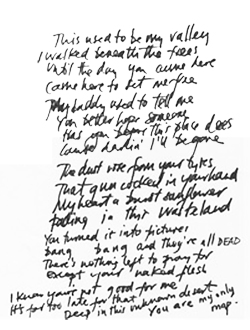 This used to be my valley
I walked beneath the trees
Until the day you came here
Came here to set me free
My daddy used to tell me
You better hope someone
Has you before this place does
Cause darlin' I'll be gone
The dust rose from your tyres
That gun cocked in your hand
My heart a burst sunflower
Fading in this wasteland
You turned it into pictures
bang bang and they're all DEAD
There's nothing left to pray for
Except your naked flesh
I know your not good for me
It's far too late for that
Deep in this unknown desert
You are my only map.